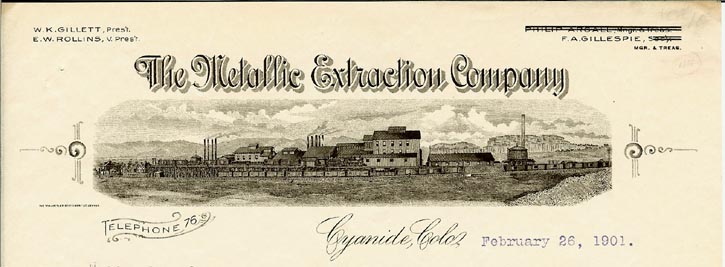 W.K. GILLETT, Prest.
E.W. ROLLINS, V. Prest.
PHILIP ARGALL, Mngr. & Treas.
F.A. GILLESPIE, Secy.
MGR. & TREAS.
The Metallic Extraction Company
TELEPHONE, 76
Cyanide, Colo. February 26, 1901.